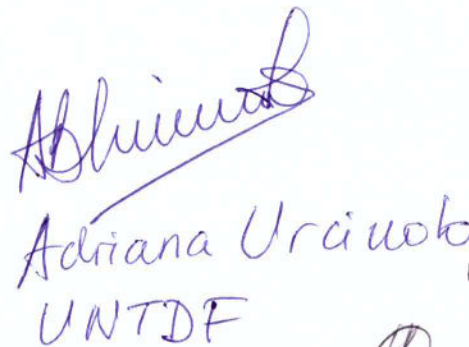 Adriana Urciuolo
UNTDF